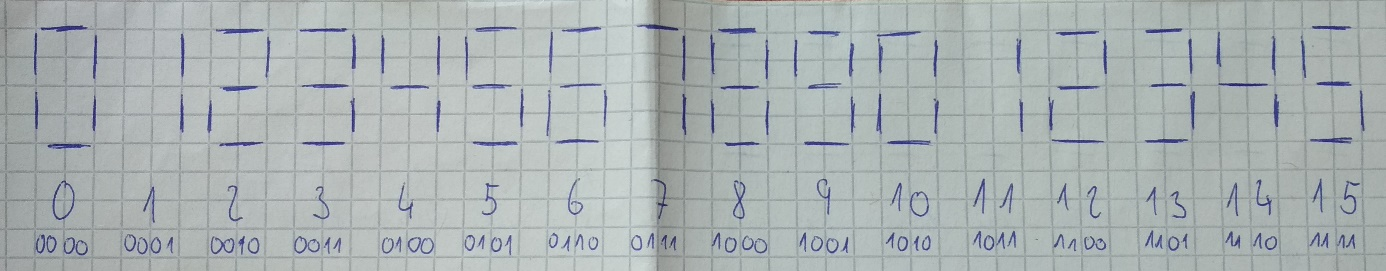 0 1 2 3 4 5 6 7 8 9 0 1 2 3 4 5
0 1 2 3 4 5 6 7 8 9 10 11 12 13 14 15
0000 0001 0010 0011 0100 0101 0110 0111 1000 1001 1010 1011 1100 1101 1110 1111